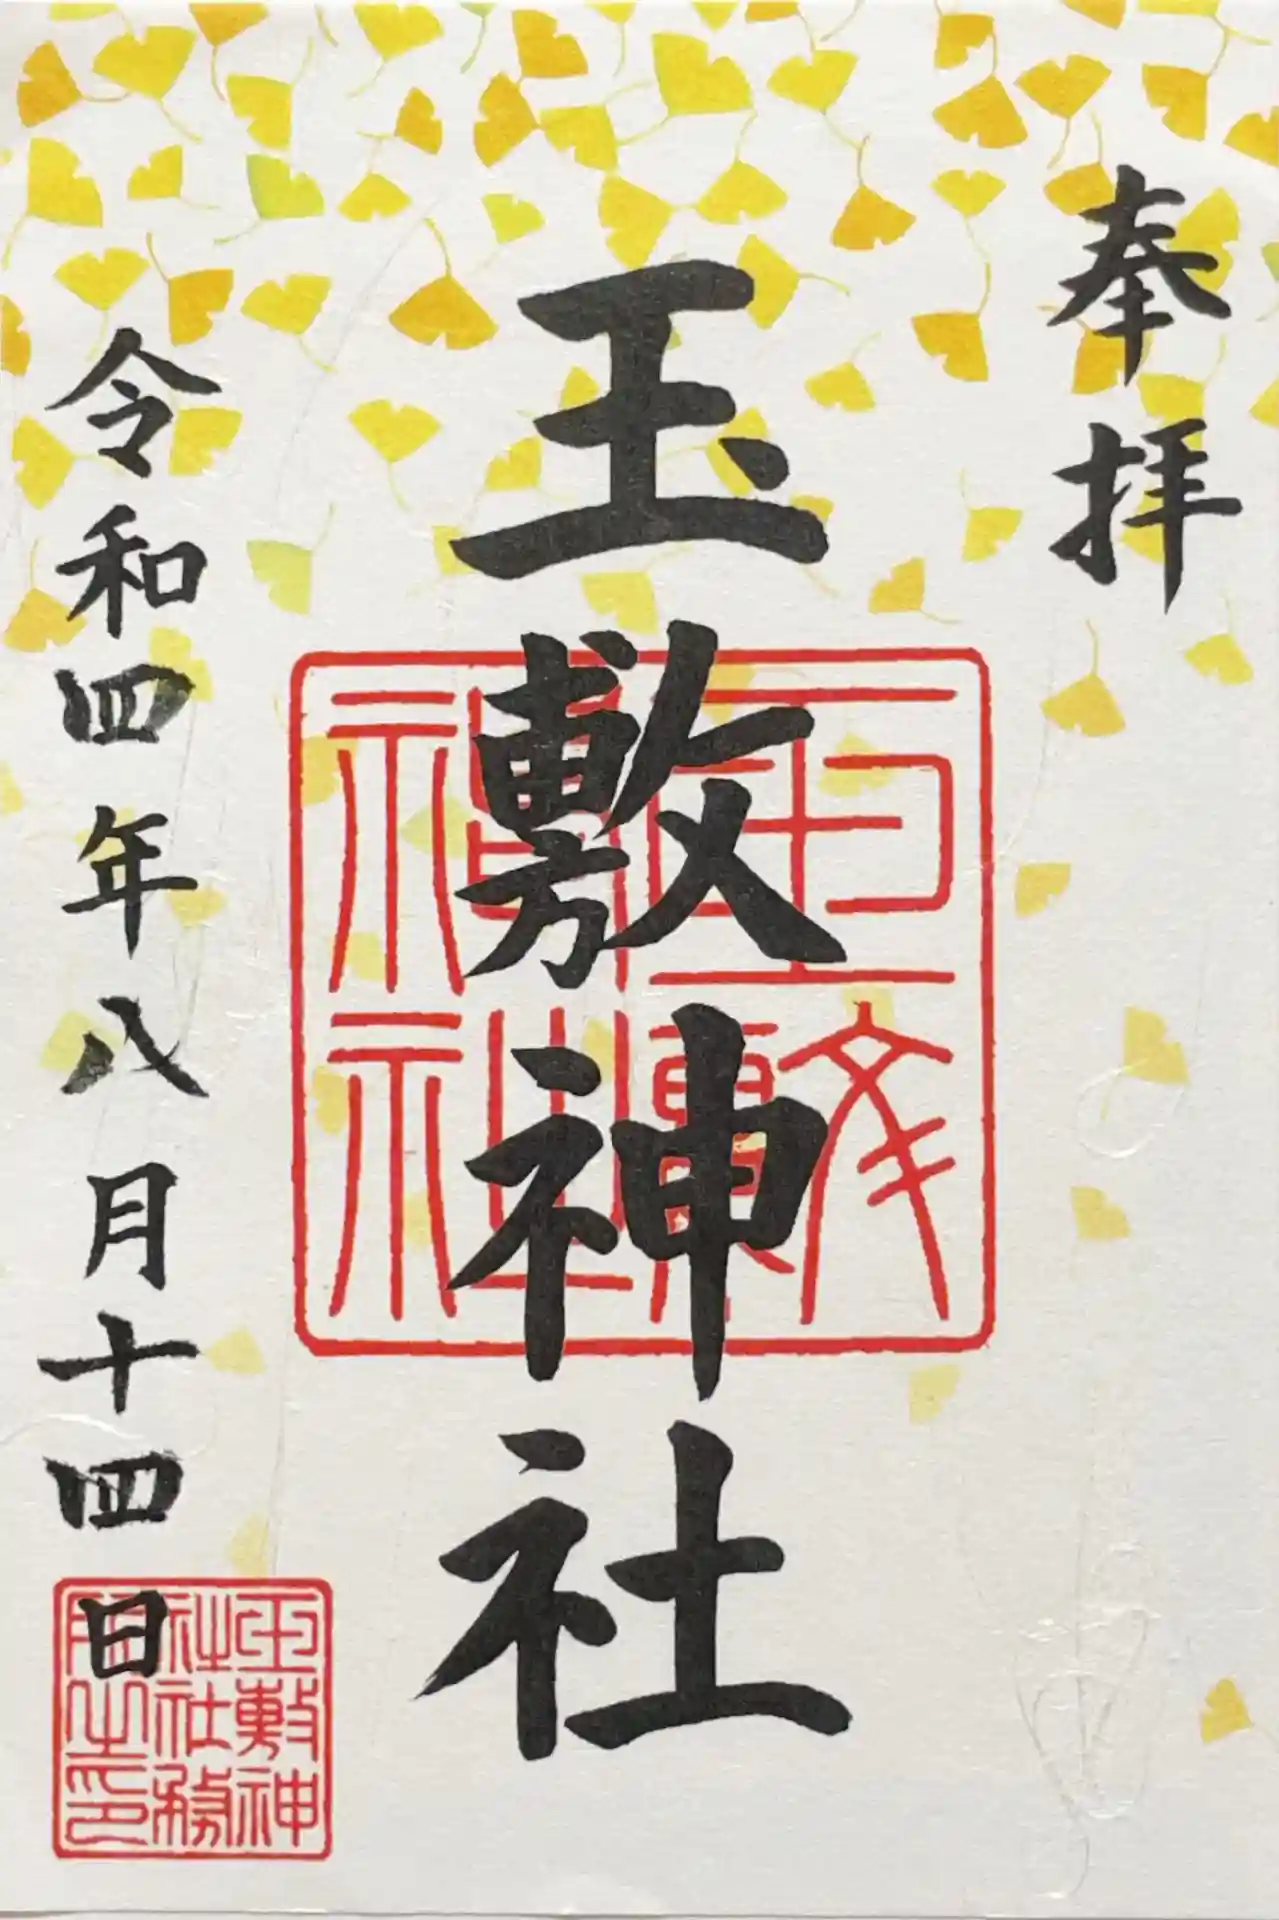 奉拝
玉敷神社
玉敷神社
令和四年八月十四日
玉敷神
社社務
所之印